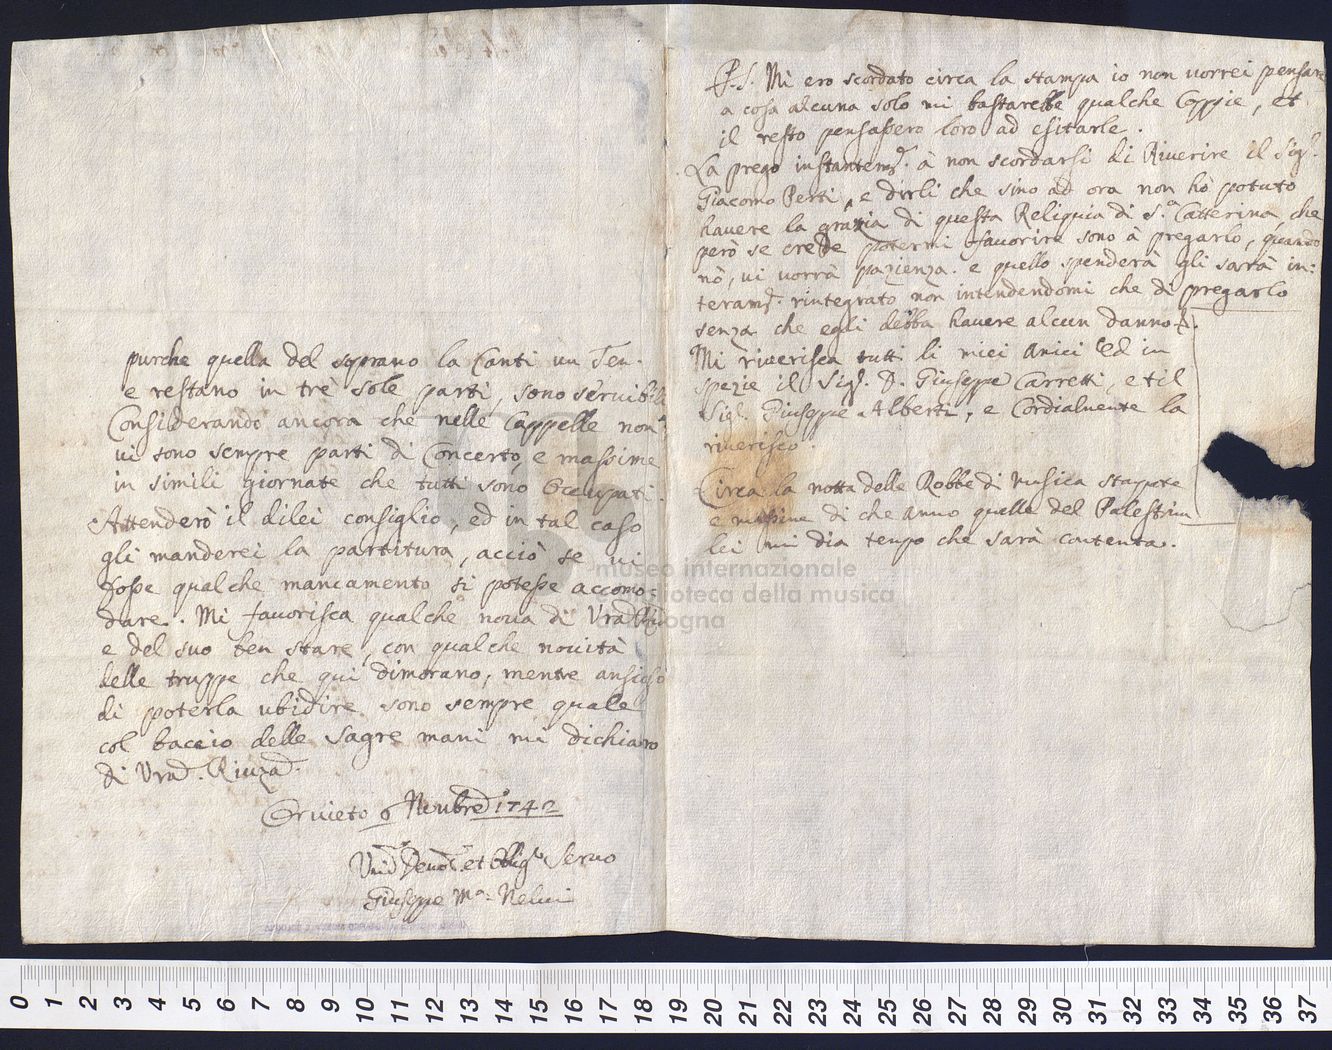 purche quella del soprano la Canti un Ten.
e restano in trè sole parti, sono servibili
Considerando ancora che nelle Cappelle non
vi sono sempre parti di Concerto, e massime
in simili giornate che tutti sono Occupati.
Attenderò il dilei consiglio, ed in tal caso
gli manderei la partitura, acciò se vi
fosse qualche mancamento si potesse accomo:
dare. Mi favorisca qualche nova di
e del suo ben stare, con qualche novità
delle truppe che qui dimorano, mentre ansioso
di poterla ubidire sono sempre quale
col baccio delle Sagre mani mi dichiaro
di Vra.
Orvieto 6 Nvubre 1742
et Obligo Servo
Giuseppe Ma. Nelvi
P.S. Mi ero scordato circa la stampa io non vorrei pensare
a cosa alcuna solo mi bastarebbe qualche Coppie, et
il resto pensassero loro ad esitarle.
La prego instantemte. à non scordarsi di Riverire il Sigr.
Giacomo Perti, e dirli che sino ad ora non hò potuto
havere la grazia di questa Reliquia di S.a Catterina, che
però se crede potermi favorire sono à pregarlo, quando
nò, vi vorrà pazienza. e quello spenderà gli sarà in:
teramte. rintegrato non intendendomi che di pregarlo
senza che egli debba havere alcun danno.
Mi riverisca tutti li miei Amici ed in
spezie il Sigr. D. Giuseppe Carretti, et il
Sigr. Giuseppe Alberti, e Cordialmente la
riverisco.
Circa la notta delle Robbe di Musica stampate
e massime di che anno quelle del Palestrina
lei mi dia tempo che sarà contenta.
museo internazionale
e biblioteca della musica
di bologna
0 1 2 3 4 5 6 7 8 9 10 11 12 13 14 15 16 17 18 19 20 21 22 23 24 25 26 27 28 29 30 31 32 33 34 35 36 37